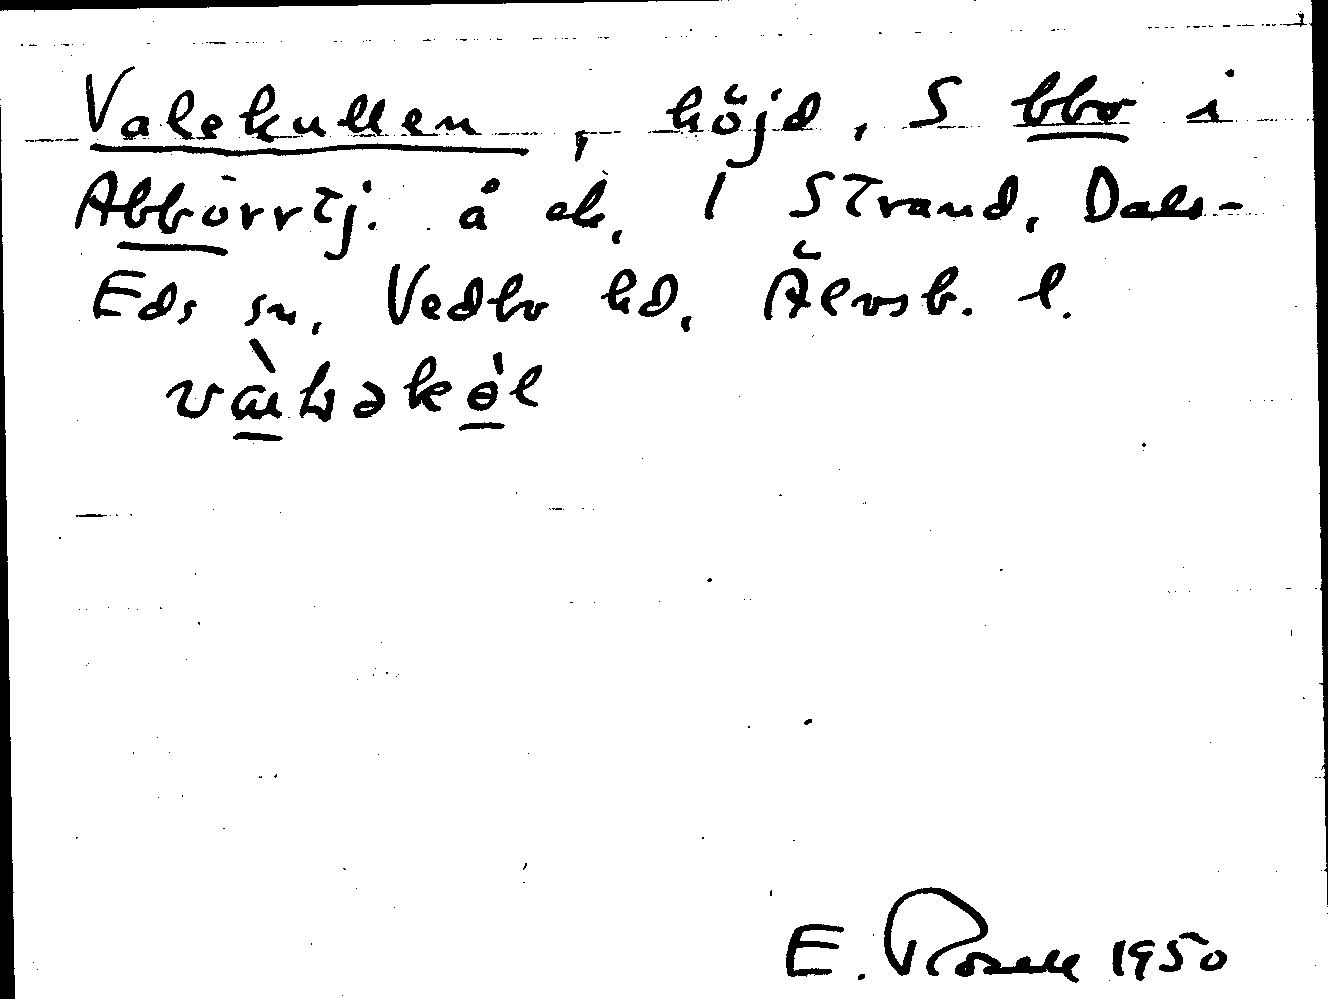 Valekullen, höjd, S bbo i
Abborrtj. å ek. 1 Strand, Dals-
Eds sn, Vedbo hd, Älvsb. l.
E. Rosell 1950